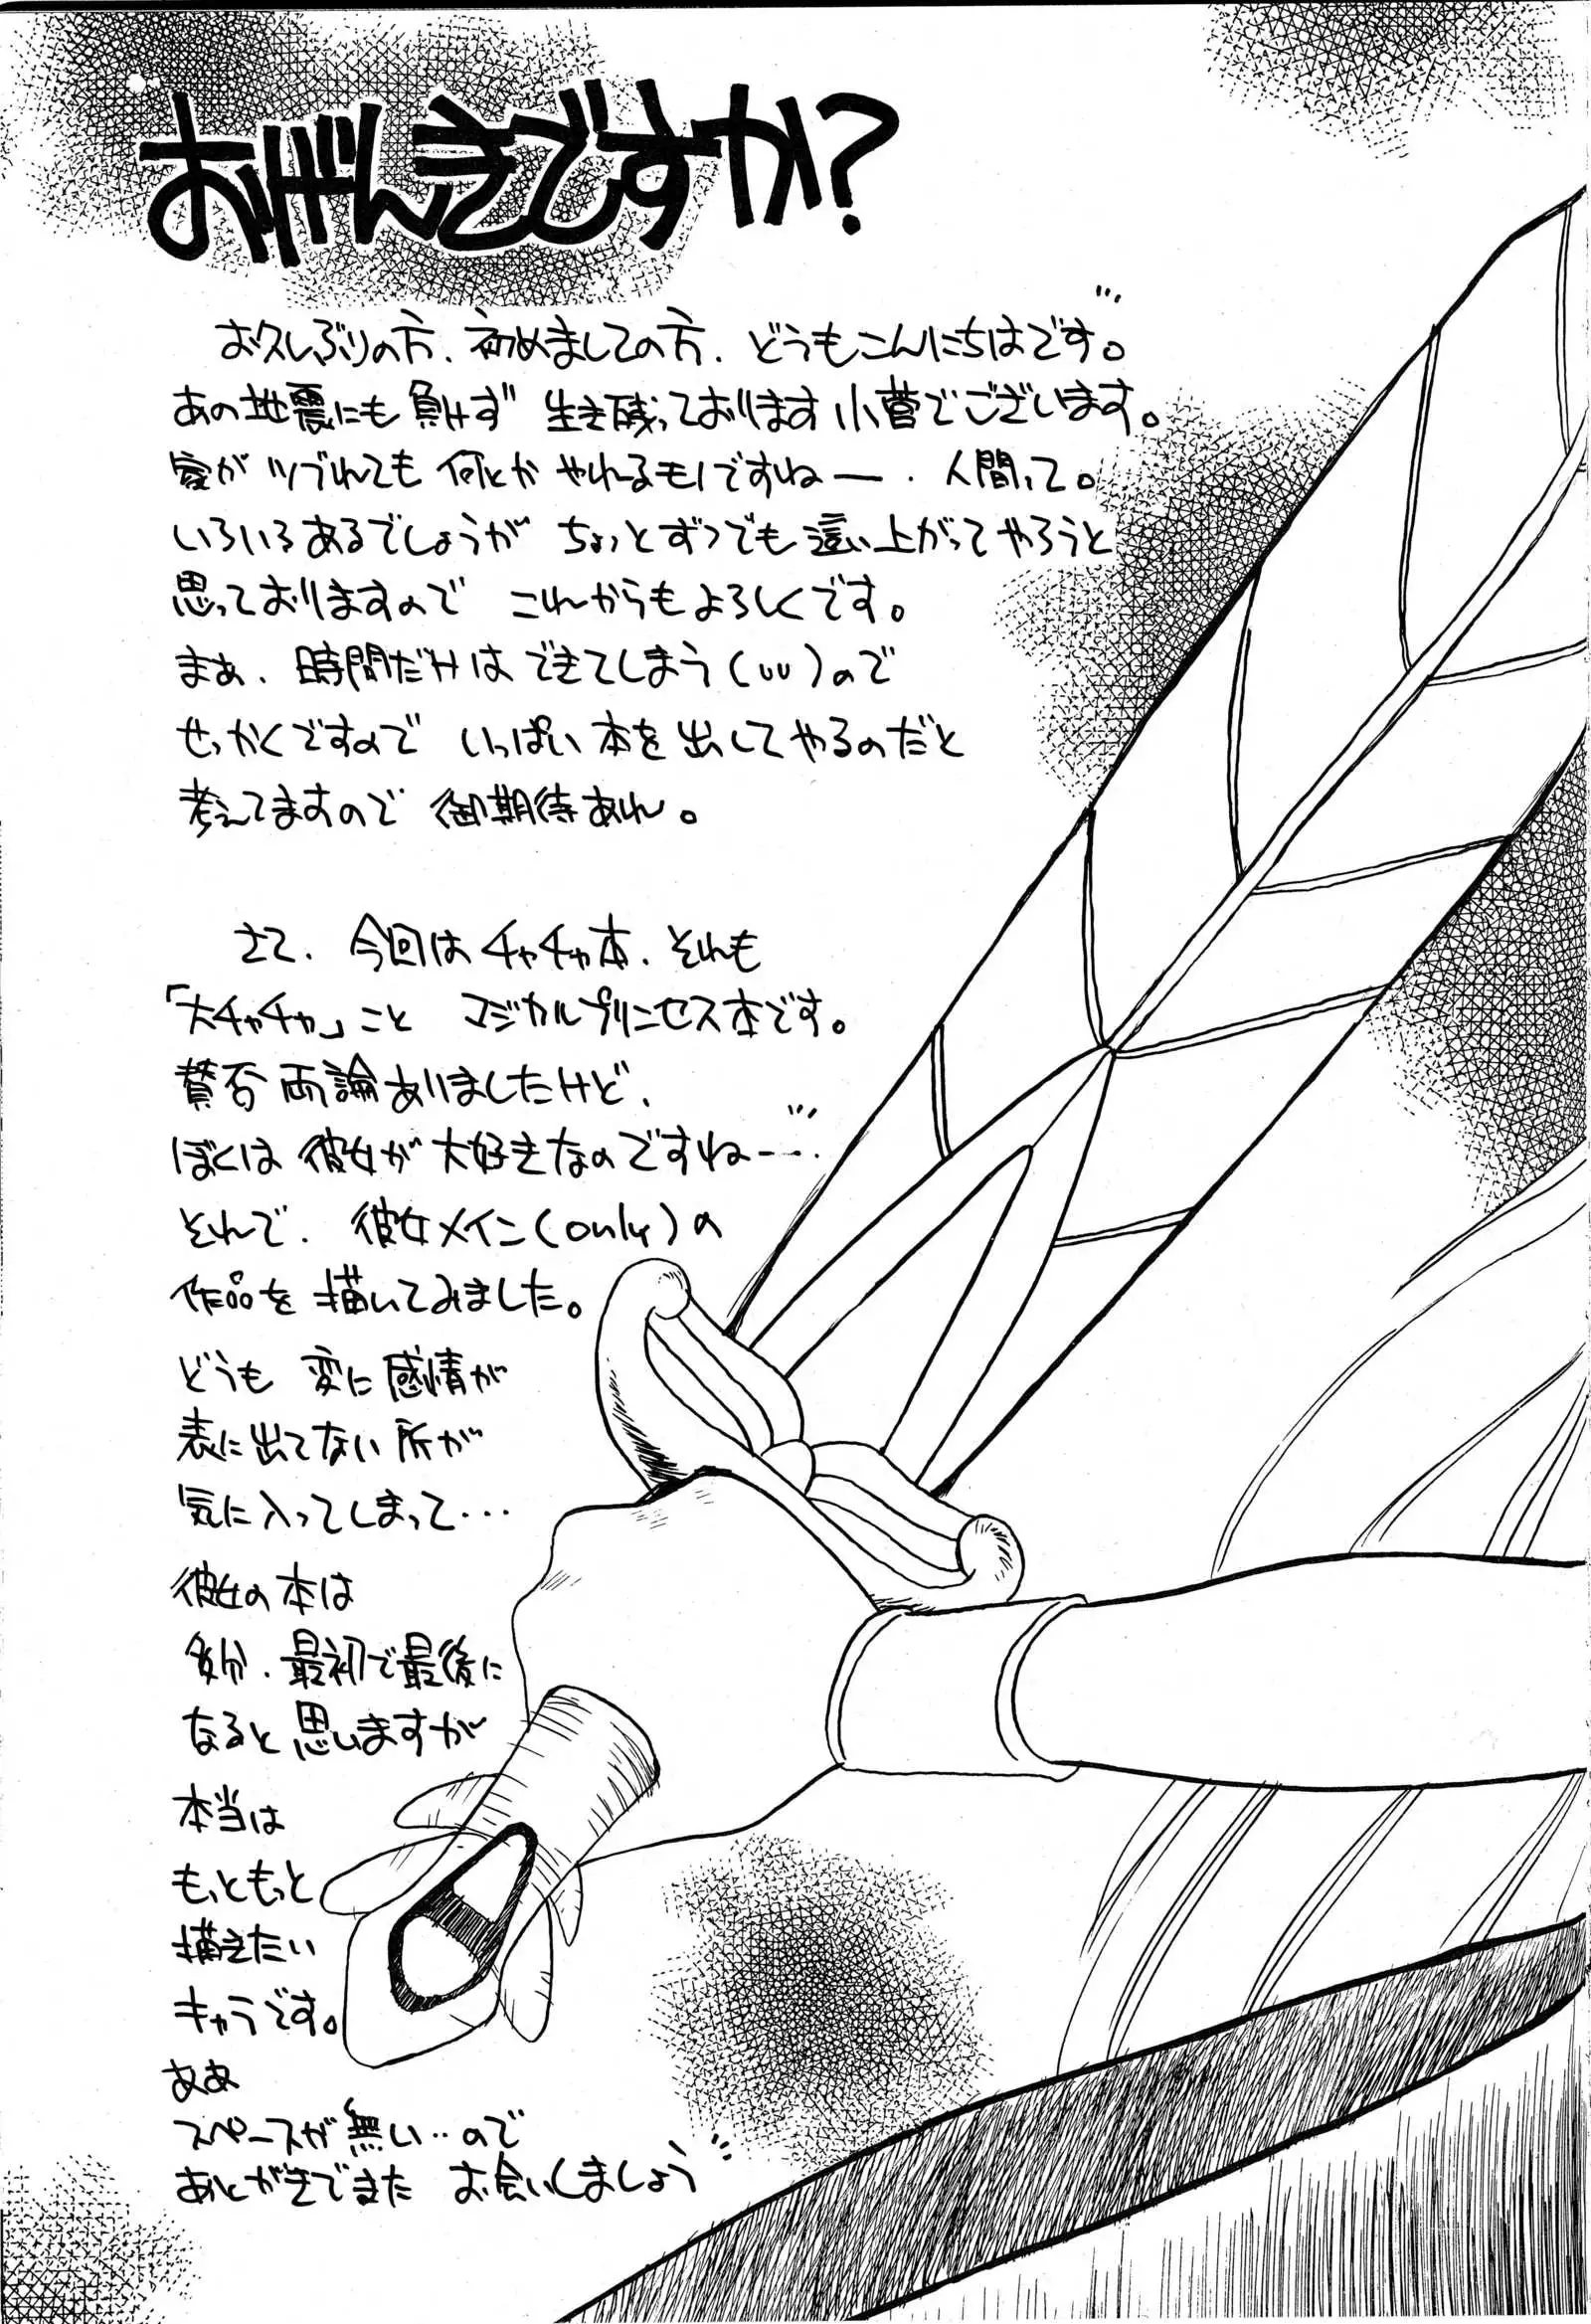 おげんきですか?
お久しぶりの方、初めましての方、どうもこんにちはです。
あの地震にも負けず 生き残っております 小菅でございます。
家が ツブれても 何とか やれるモノですねー、人間って。
いろいろあるでしょうが ちょっとずつでも 這い上がってやろうと
思っておりますので これからもよろしくです。
まぁ、時間だけは できてしまう(uu)ので
せっかくですので いっぱい 本を出してやるのだと
考えてますので 御期待あれ。
さて、今回は チャチャ本、それも
「大チャチャ」こと マジカルプリンセス本です。
賛否両論ありましたけど、
ぼくは 彼女が 大好きなのですねー…
それで、彼女メイン(only)の
作品を 描いてみました。
どうも 変に 感情が
表に出てない 所が
気に入ってしまって・・・
彼女の 本は
多分、最初で最後に
なると 思いますが
本当は
もっともっと
描きたい
キャラです。
ああ
スペースが 無い‥ので
あとがきでまた お会いしましょう